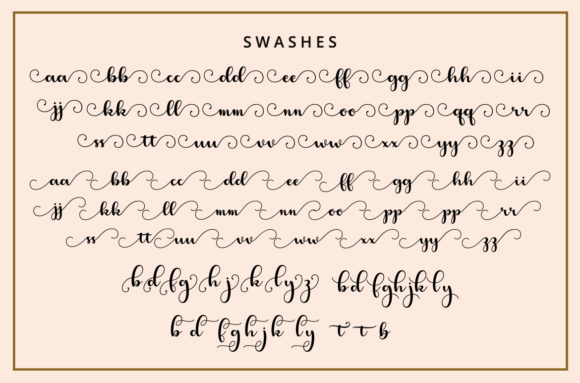 SWASHES
aa bb cc dd ee ff gg hh ii
jj kk ll mm nn oo pp qq rr
ss tt uu vv ww xx yy zz
aa bb cc dd ee ff gg hh ii
jj kk ll mm nn oo pp pp rr
ss tt uu vv ww xx yy zz
b d f g h j k l y z b d f g h j k l y
b d f g h j k l y t t b